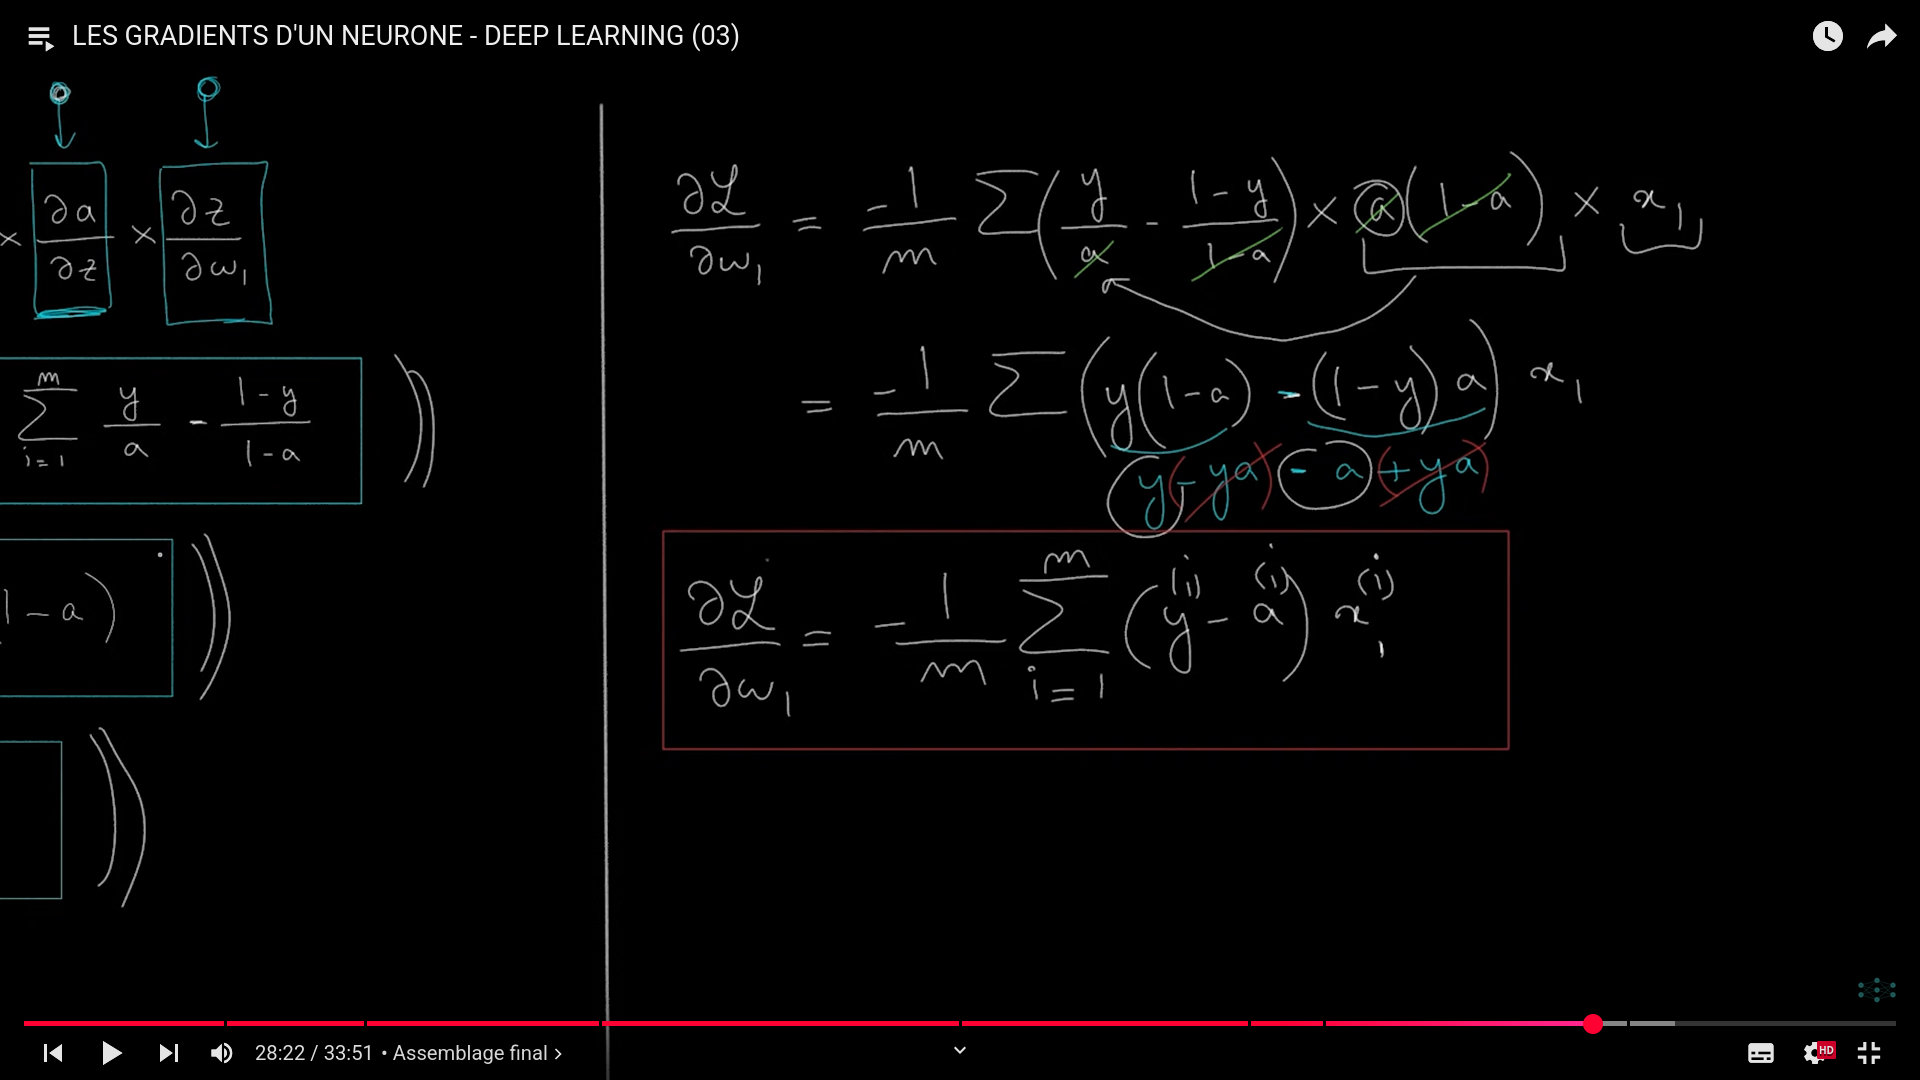 LES GRADIENTS D'UN NEURONE - DEEP LEARNING (03)
× ∂a/∂z × ∂z/∂w₁
∑ᵢ₌₁ᵐ y/a - (1-y)/(1-a) ))
1-a) ))
))
∂ℒ/∂w₁ = -1/m ∑(y/a - (1-y)/(1-a)) × a(1-a) × x₁
= -1/m ∑(y(1-a) - (1-y)a) x₁
y(-ya) - a (+ya)
∂ℒ/∂w₁ = -1/m ∑ᵢ₌₁ᵐ (y⁽ⁱ⁾ - a⁽ⁱ⁾) x₁⁽ⁱ⁾
28:22 / 33:51 • Assemblage final ›
HD